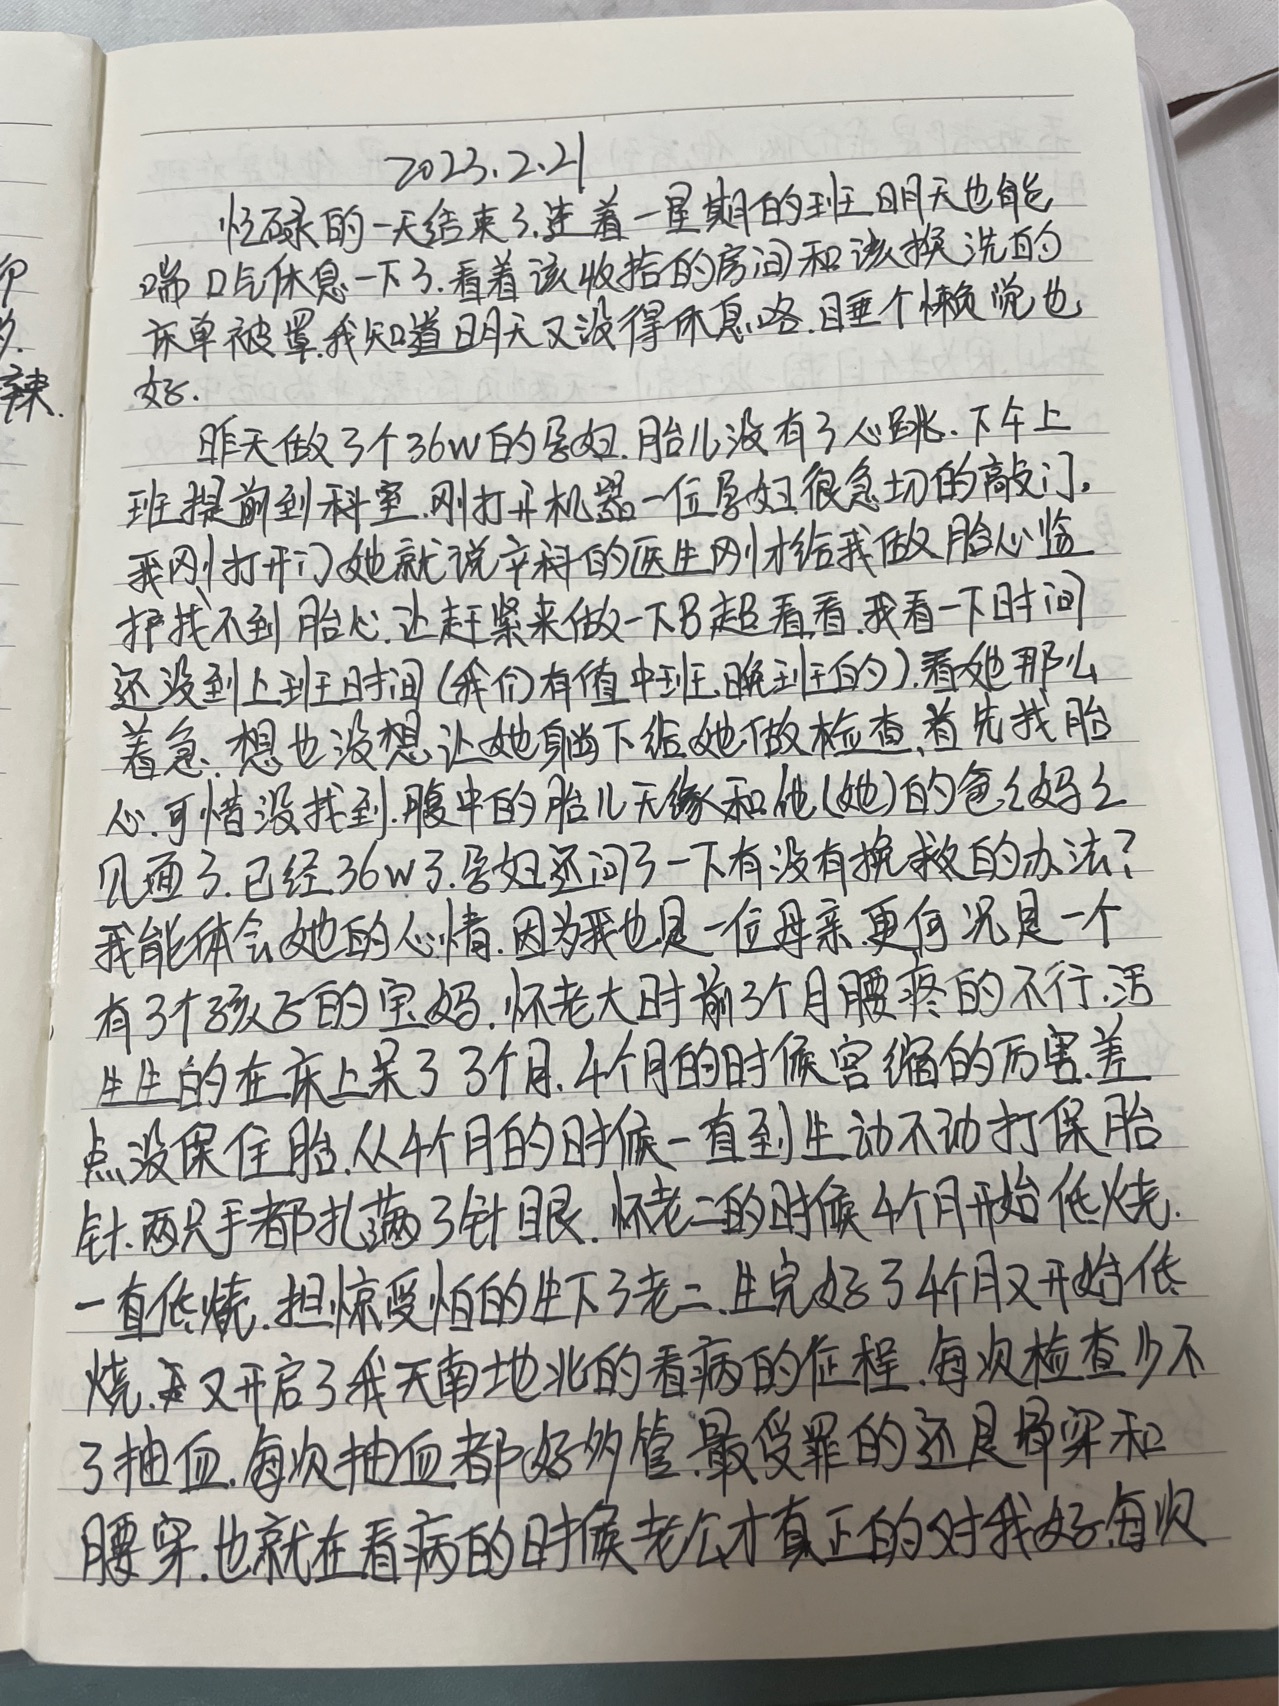 2023.2.21
忙碌的一天结束了.连着一星期的班.明天也能
喘口气休息一下了.看着该收拾的房间和该换洗的
床单被罩.我知道明天又没得休息咯.睡个懒觉也
好.
昨天做了个36W的孕妇.胎儿没有了心跳.下午上
班提前到科室.刚打开机器一位孕妇很急切的敲门.
我刚打开门她就说产科的医生刚才给我做胎心监
护找不到胎心.让赶紧来做一下B超看看.我看一下时间
还没到上班时间(我们有值中班.晚班的).看她那么
着急.想也没想让她躺下给她做检查.首先找胎
心.可惜没找到.腹中的胎儿无缘和他(她)的爸爸妈妈
见面了.已经36W了.孕妇还问了一下有没有挽救的办法?
我能体会她的心情.因为我也是一位母亲.更何况是一个
有3个孩子的宝妈.怀老大时前3个月腰疼的不行.活
生生的在床上呆了3个月.4个月的时候宫缩的厉害.差
点没保住胎.从4个月的时候一直到生动不动打保胎
针.两只手都扎满了针眼.怀老二的时候4个月开始低烧.
一直低烧.担惊受怕的生下了老二.生完好了4个月又开始低
烧.又开启了我天南地北的看病的征程.每次检查少不
了抽血.每次抽血都好多管.最受罪的还是骨穿和
腰穿.也就在看病的时候老公才真正的对我好.每次
卵
辣.